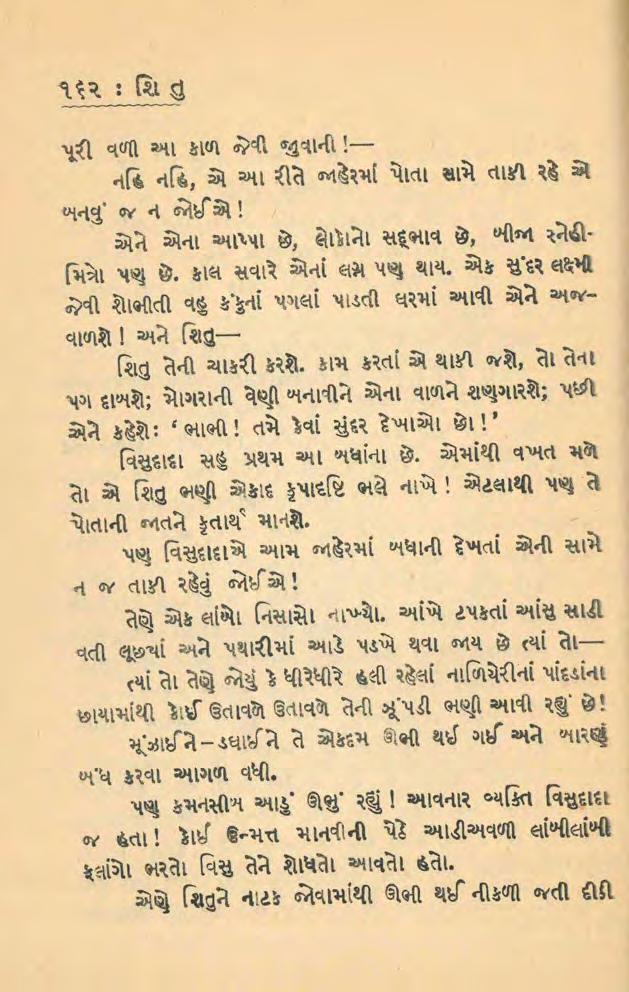 ૧૬૨ : શિ તુ
પૂરી વળી આ કાળ જેવી જુવાની !—
નહિ નહિ, એ આ રીતે જાહેરમાં પોતા સામે તાકી રહે એ
બનવું જ ન જોઈએ !
એને એના આપ્પા છે, લોકોનો સદ્ભાવ છે, બીજા સ્નેહી-
મિત્રો પણ છે. કાલ સવારે એનાં લગ્ન પણ થાય. એક સુંદર લક્ષ્મી
જેવી શોભીતી વહુ કંકુનાં પગલાં પાડતી ઘરમાં આવી એને અજ-
વાળશે ! અને શિતુ—
શિતુ તેની ચાકરી કરશે. કામ કરતાં એ થાકી જશે, તો તેના
પગ દાબશે; મોગરાની વેણી બનાવીને એના વાળને શણગારશે; પછી
એને કહેશેઃ ‘ ભાભી ! તમે કેવાં સુંદર દેખાઓ છો !’
વિસુદાદા સહુ પ્રથમ આ બધાંના છે. એમાંથી વખત મળે
તો એ શિતુ ભણી એકાદ કૃપાદષ્ટિ ભલે નાખે ! એટલાથી પણ તે
પોતાની જાતને કૃતાર્થ માનશે.
પણ વિસુદાદાએ આમ જાહેરમાં બધાની દેખતાં એની સામે
ન જ તાકી રહેવું જોઈએ !
તેણે એક લાંબો નિસાસો નાખ્યો. આંખે ટપકતાં આંસુ સાડી
વતી લૂછ્યાં અને પથારીમાં આડે પડખે થવા જાય છે ત્યાં તો—
ત્યાં તો તેણે જોયું કે ધીરેધીરે હલી રહેલાં નાળિયેરીનાં પાંદડાંના
છાયામાંથી કોઈ ઉતાવળે ઉતાવળે તેની ઝૂંપડી ભણી આવી રહ્યું છે!
મૂંઝાઈને–ડઘાઈને તે એકદમ ઊભી થઈ ગઈ અને બારણું
બંધ કરવા આગળ વધી.
પણ કમનસીબ આડું ઊભું રહ્યું ! આવનાર વ્યક્તિ વિસુદાદા
જ હતા ! કોઈ ઉન્મત્ત માનવીની પેઠે આડીઅવળી લાંબીલાંબી
ફલાંગો ભરતો વિસુ તેને શોધતો આવતો હતો.
એણે શિતુને નાટક જોવામાંથી ઊભી થઈ નીકળી જતી દીઠી